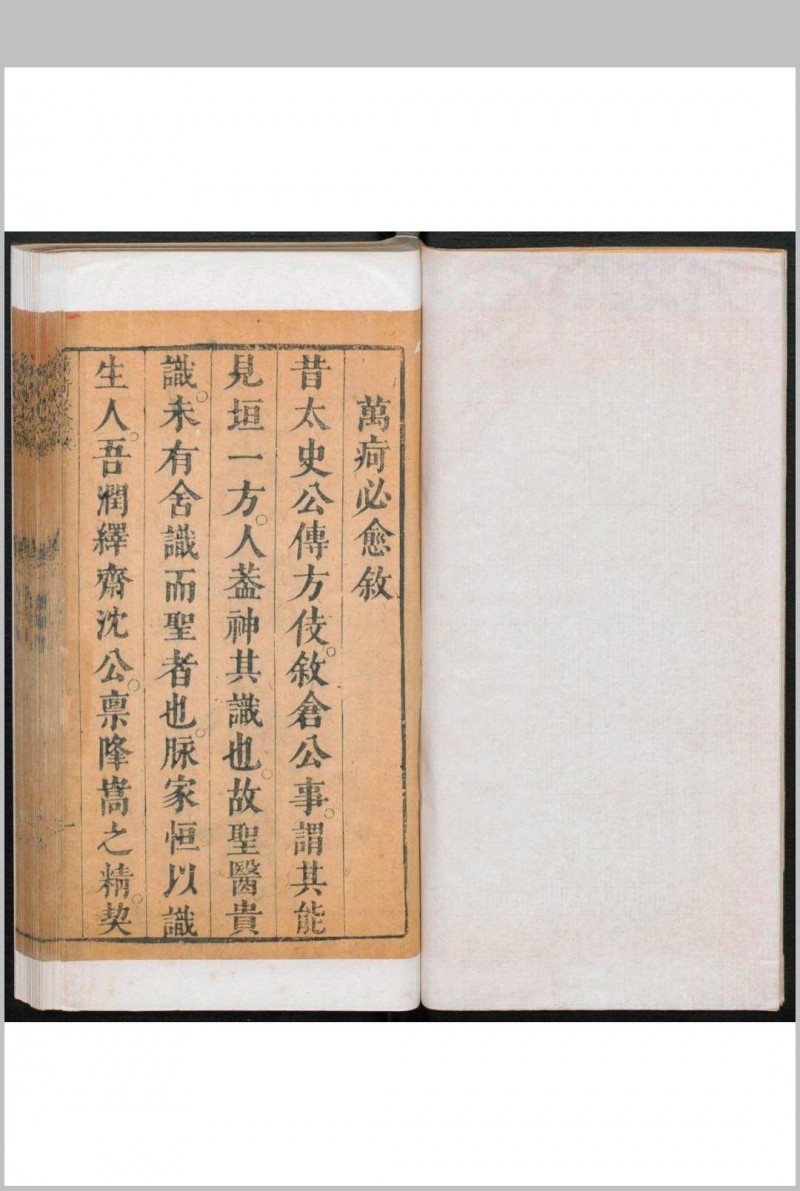 萬痾必愈敘
昔太史公傳方伎。敘倉公事。謂其能
見垣一方。人葢神其識也。故聖醫貴
識。未有舍識而聖者也。脉家恒以識
生人。吾潤繹齋沈公。禀隆嵩之精。契